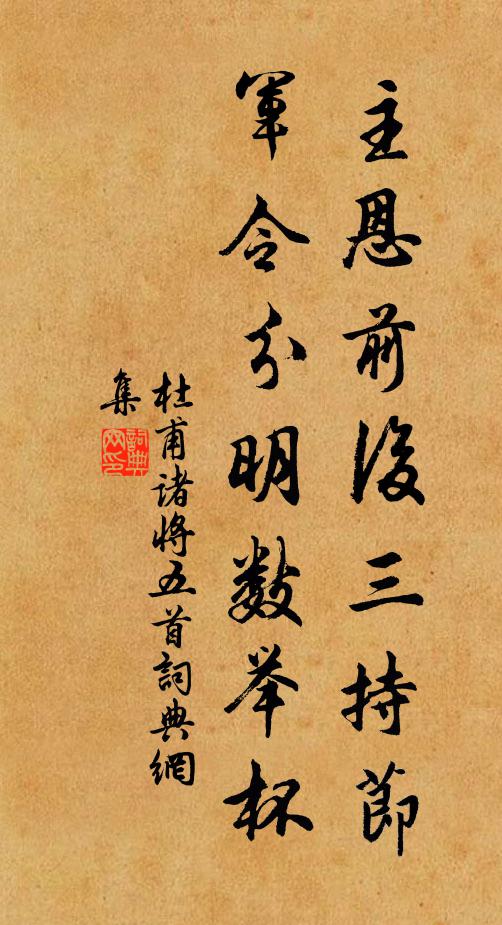 主恩前後三持節
軍令分明數舉杯
杜甫諸將五首詞典網
集
詞典
网印